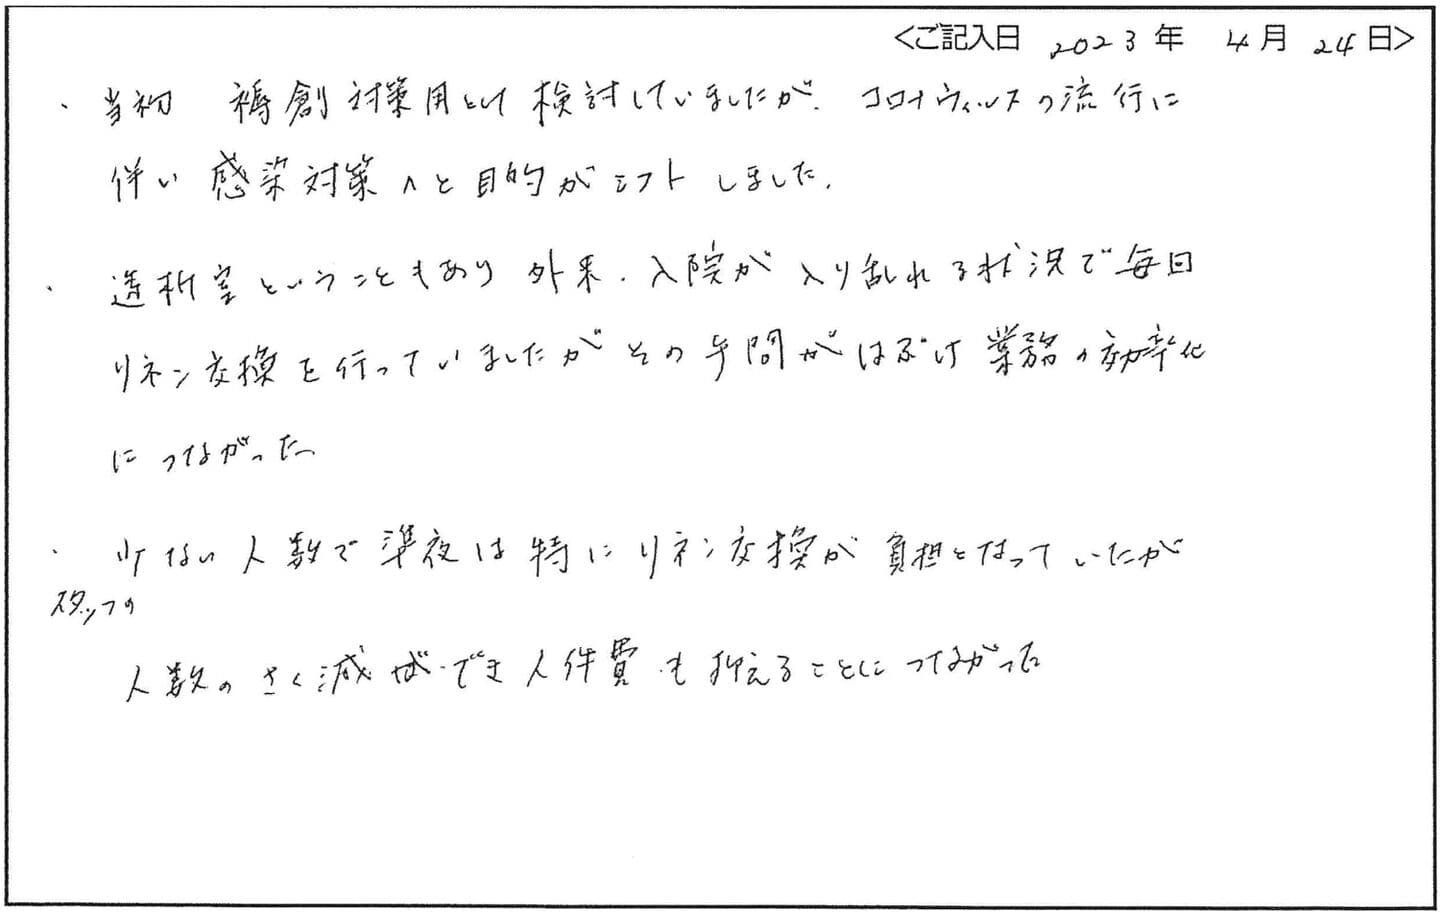 <ご記入日 2023年 4月 24日>
・当初 褥創対策用として検討していましたが、コロナウィルスの流行に
伴い 感染対策へと目的がシフトしました。
・透析室ということもあり 外来・入院が入り乱れる状況で毎日
リネン交換を行っていましたがその手間がはぶけ業務の効率化
につながった
・少ない人数で準夜は特にリネン交換が負担となっていたが
スタッフの
人数のさく減ができ人件費も抑えることにつながった